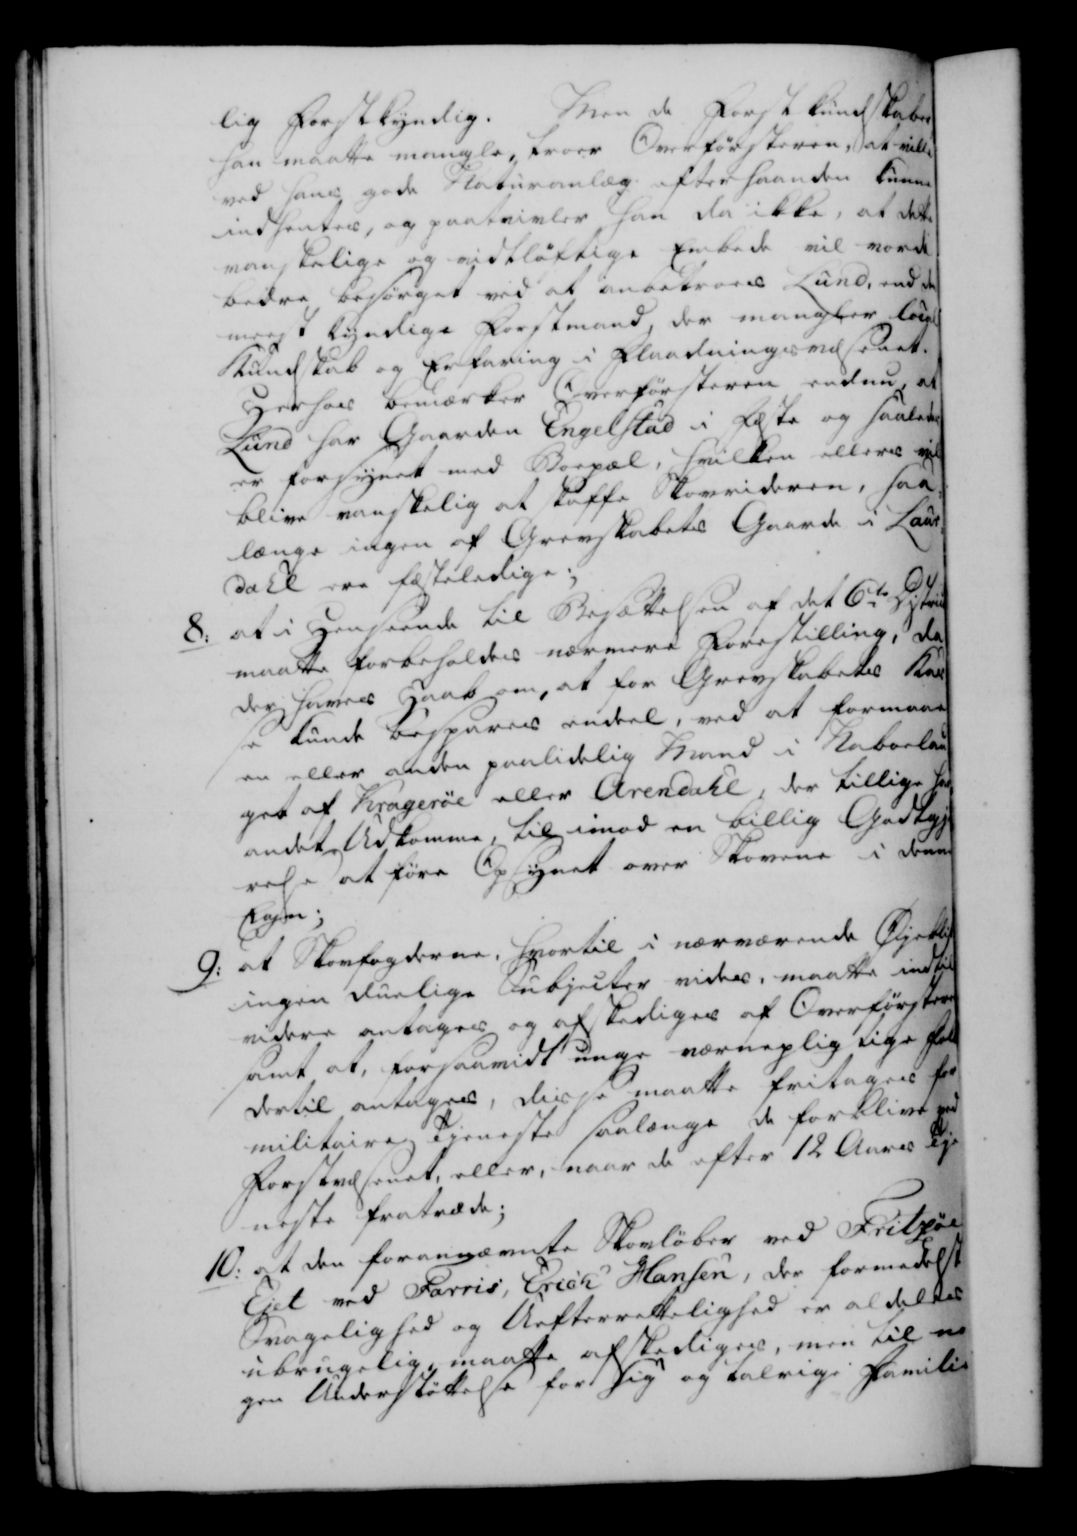 lig Forstkyndig. Men de Forstkundskaber
han maatte mangle, troer Overførsteren, at ville
ved hans gode Naturanlæg efterhaanden kunne
indhentes, og paatvivler han da ikke, at dette
vanskelige og vidtløftige Embede vil vorde
bedre besørget ved at anbetroes Lund, end den
meest kyndige Forstmand, der mangler local
Kundskab og Erfaring i Flaadningsvæsenet.
Herhos bemærker Overførsteren endnu, at
Lund har Gaarden Engelstad i Fæste og saaledes
er forsynet med Boepæl, hvilken ellers vil
blive vanskelig at skaffe Skovrideren, saa-
længe ingen af Grevskabets Gaarde i Laur-
dahl ere fæsteledige;
8: at i Henseende til Besættelsen af det 6te District
maatte forbeholdes nærmere Forestilling, da
der haves Haab om, at for Grevskabets Kas-
se kunde bespares endeel, ved at formaae
en eller anden paalidelig Mand i Naboelau-
get af Kragerøe eller Arendahl, der tillige har
andet Udkomme, til imod en billig Godtgjø-
relse at føre Opsynet over Skovene i denne
Egn;
9: at Skovfogderne, hvortil i nærværende Øjeblik
ingen duelige Subjecter vides, maatte indtil
videre antages og afskediges af Overførsteren
samt at, forsaavidt unge værnepligtige Folk
dertil antages, disse maatte fritages for
militaire Tjeneste saalænge de forblive ved
Forstvæsenet, eller, naar de efter 12 Aars Tje-
neste fratræde;
10: at den forannævnte Skovløber ved Fritzøe
Ejet ved Farris, Erich Hansen, der formedelst
Svagelighed og Uefterrettelighed er aldeles
ubrugelig, maatte afskediges, men til no-
gen Understøttelse for sig og talrige Familie